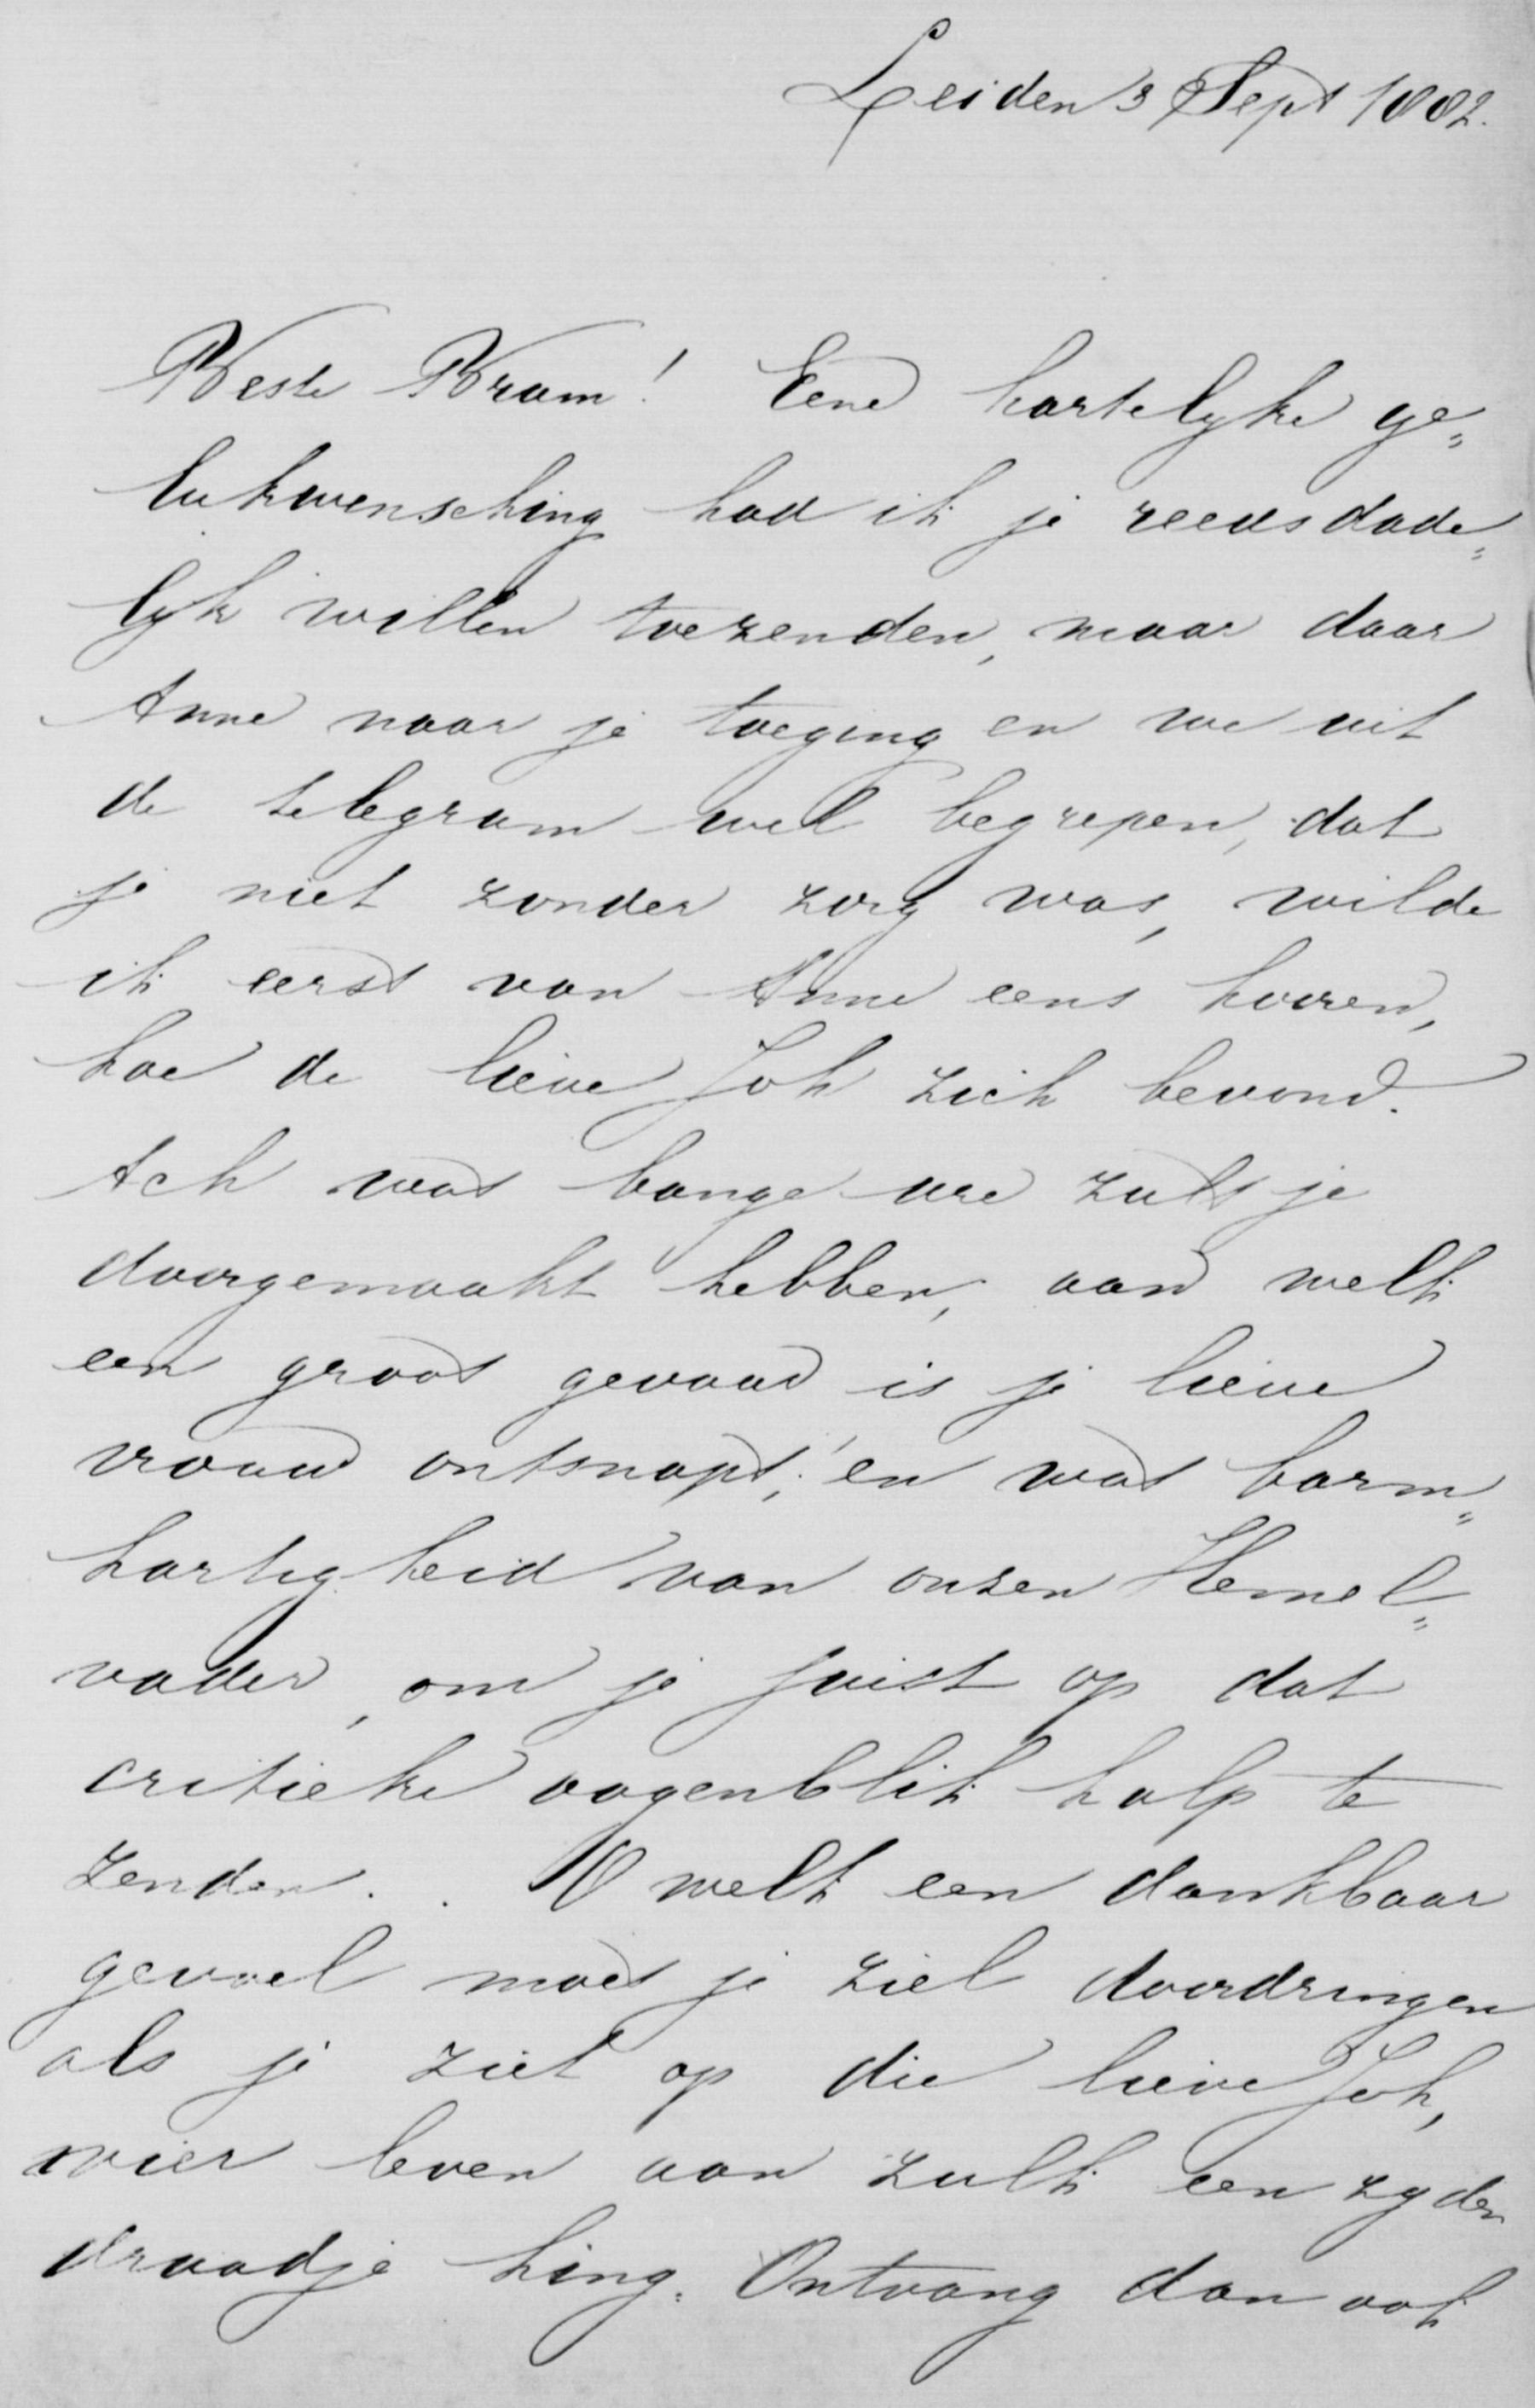 Leiden 3 Sept 1882.
Beste Bram! Eene hartelyke ge„
lukwensching had ik je reeds dade„
lyk willen toezenden, maar daar
Anne naar je toeging en we uit
de telegram wel begrepen, dat
je niet zonder zorg was, wilde
ik eerst van Anne eens hooren,
hoe de lieve Joh zich bevond.
Ach wat bange ure zult je
doorgemaakt hebben, aan welk
een groot gevaar is je lieve
vrouw ontsnapt, en wat barm„
hartigheid van onzen Hemel„
vader, om je juist op dat
critieke oogenblik hulp te
zenden. . O welk een dankbaar
gevoel moet je ziel doordringen
als je ziet op die lieve Joh,
wier leven aan zulk een zyden
draadje hing. Ontvang dan ook